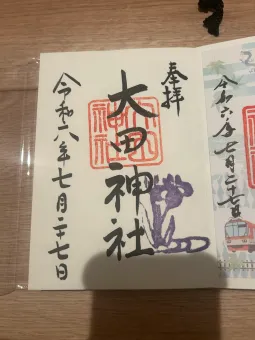 令和六年七月二十七日
奉拝
大田神社
令和六年七月二十七日